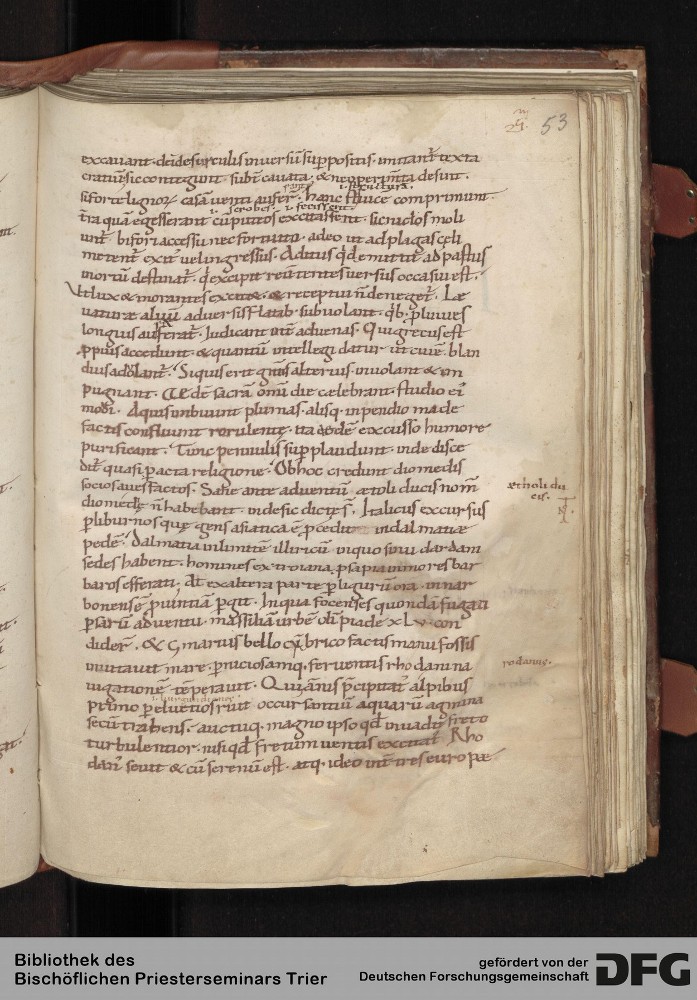 53
excauant · deinde surculis inuersū sup̄positis · imitant̄ texta
cratiū sic contegunt · subt̄ cauata · & ne operim̄ta desint ·
i. structurā.
si forte lignoꝝ casā uenti aufer̄t · hanc struice comprimunt ·
i. scrobes · i. fecissent ·
t̄ra quā egesserant cū puteos excitassent · Sic nidos moli
unt̄ bifori accessu nec fortuitū · adeo ut ad plagas cęli
metent̄ exit᷒ uel ingressus · Aditus q̇ dimittit ad pastus
in ortū destinat̄ · q̇ excipit reuertentes uersus occasū est ·
Vt lux & morantes excitæt · & receptui n̄ deneget̄ · Læ
uaturæ aluū aduersis flatib; subuolant · q̇b; pluuies
longius auferat̄ · Iudicant int̄ aduenas · Qui grecus est
ꝓpius accedunt · & quantū intellegi datur ut ciuē blan
dius adolant̄ · Siquis erit gn̄tis alterius · inuolant & im
pugnant · Ædē sacrā omī die cælebrant · studio ei᷒
modi · Aquis imbuunt plumas · alisq; inpendio made
factis confluunt rorulentę · ita ędē excusso humore
purificant · Tunc pennulis sup̄plaudunt · inde disce
dit̄ quasi ꝑacta religione · Ob hoc credunt diomedis
socios aues factos · Sane ante aduentū ætoli ducis nom̄
ætholi du
cis ·
diomedię n̄ habebant · inde sic dictę s̄ · Italicus excursus
ꝑ liburnos quę gens asiatica ē ꝓcedit in dalmatiæ
pedē · Dalmatia in limitē illiricū · in quo sinu dardani
sedes habent · homines ex troiana ꝓsapia in mores bar
baros efferati · At ex altera parte ꝑ ligurū ora in nar
bonensē ꝓuintiā ꝑgit · In qua focenses quondā fugati
ꝑsarū aduentu · massiliā urbē olīpiade xlv · con
dider̄ · & C̄ marius bello cīmbrico factis manu fossis
inuitauit mare · ꝑniciosamq; feruentis rhodani na
rodanus ·
uigationē tēperauit · Qui ānis p̄cipitat᷒ alpibus
primo ꝑ eluetios ruit · occursantiū aquarū agmina
secū trahens · auctuq; magno ipso qđ inuadit freto
turbulentior · nisi qđ fretum uentis excitat̄ Rho
dan᷒ seuit & cū serenū est · atq; ideo int̄ tres europæ
Bibliothek des
Bischöflichen Priesterseminars Trier
gefördert von der
Deutschen Forschungsgemeinschaft
DFG